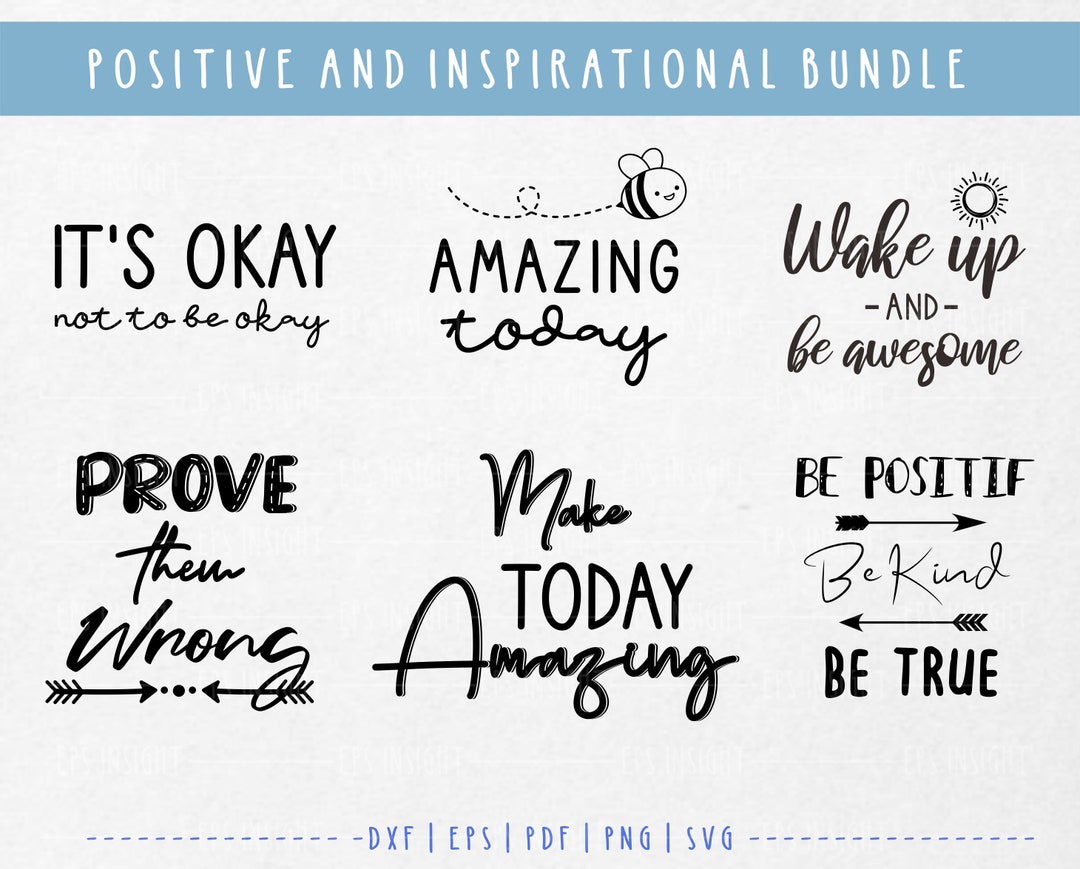 POSITIVE AND INSPIRATIONAL BUNDLE
IT'S OKAY
not to be okay
AMAZING
today
Wake up
-AND-
be awesome
PROVE
them
Wrong
Make
TODAY
Amazing
BE POSITIF
Be Kind
BE TRUE
EPS INSIGHT EPS INSIGHT EPS INSIGHT EPS INSIGHT
DXF | EPS | PDF | PNG | SVG